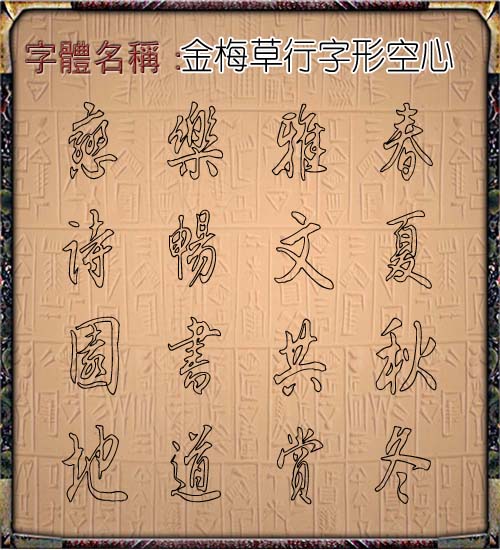 字體名稱：金梅草行字形空心
春夏秋冬
雅文共賞
樂暢書道
戀詩園地